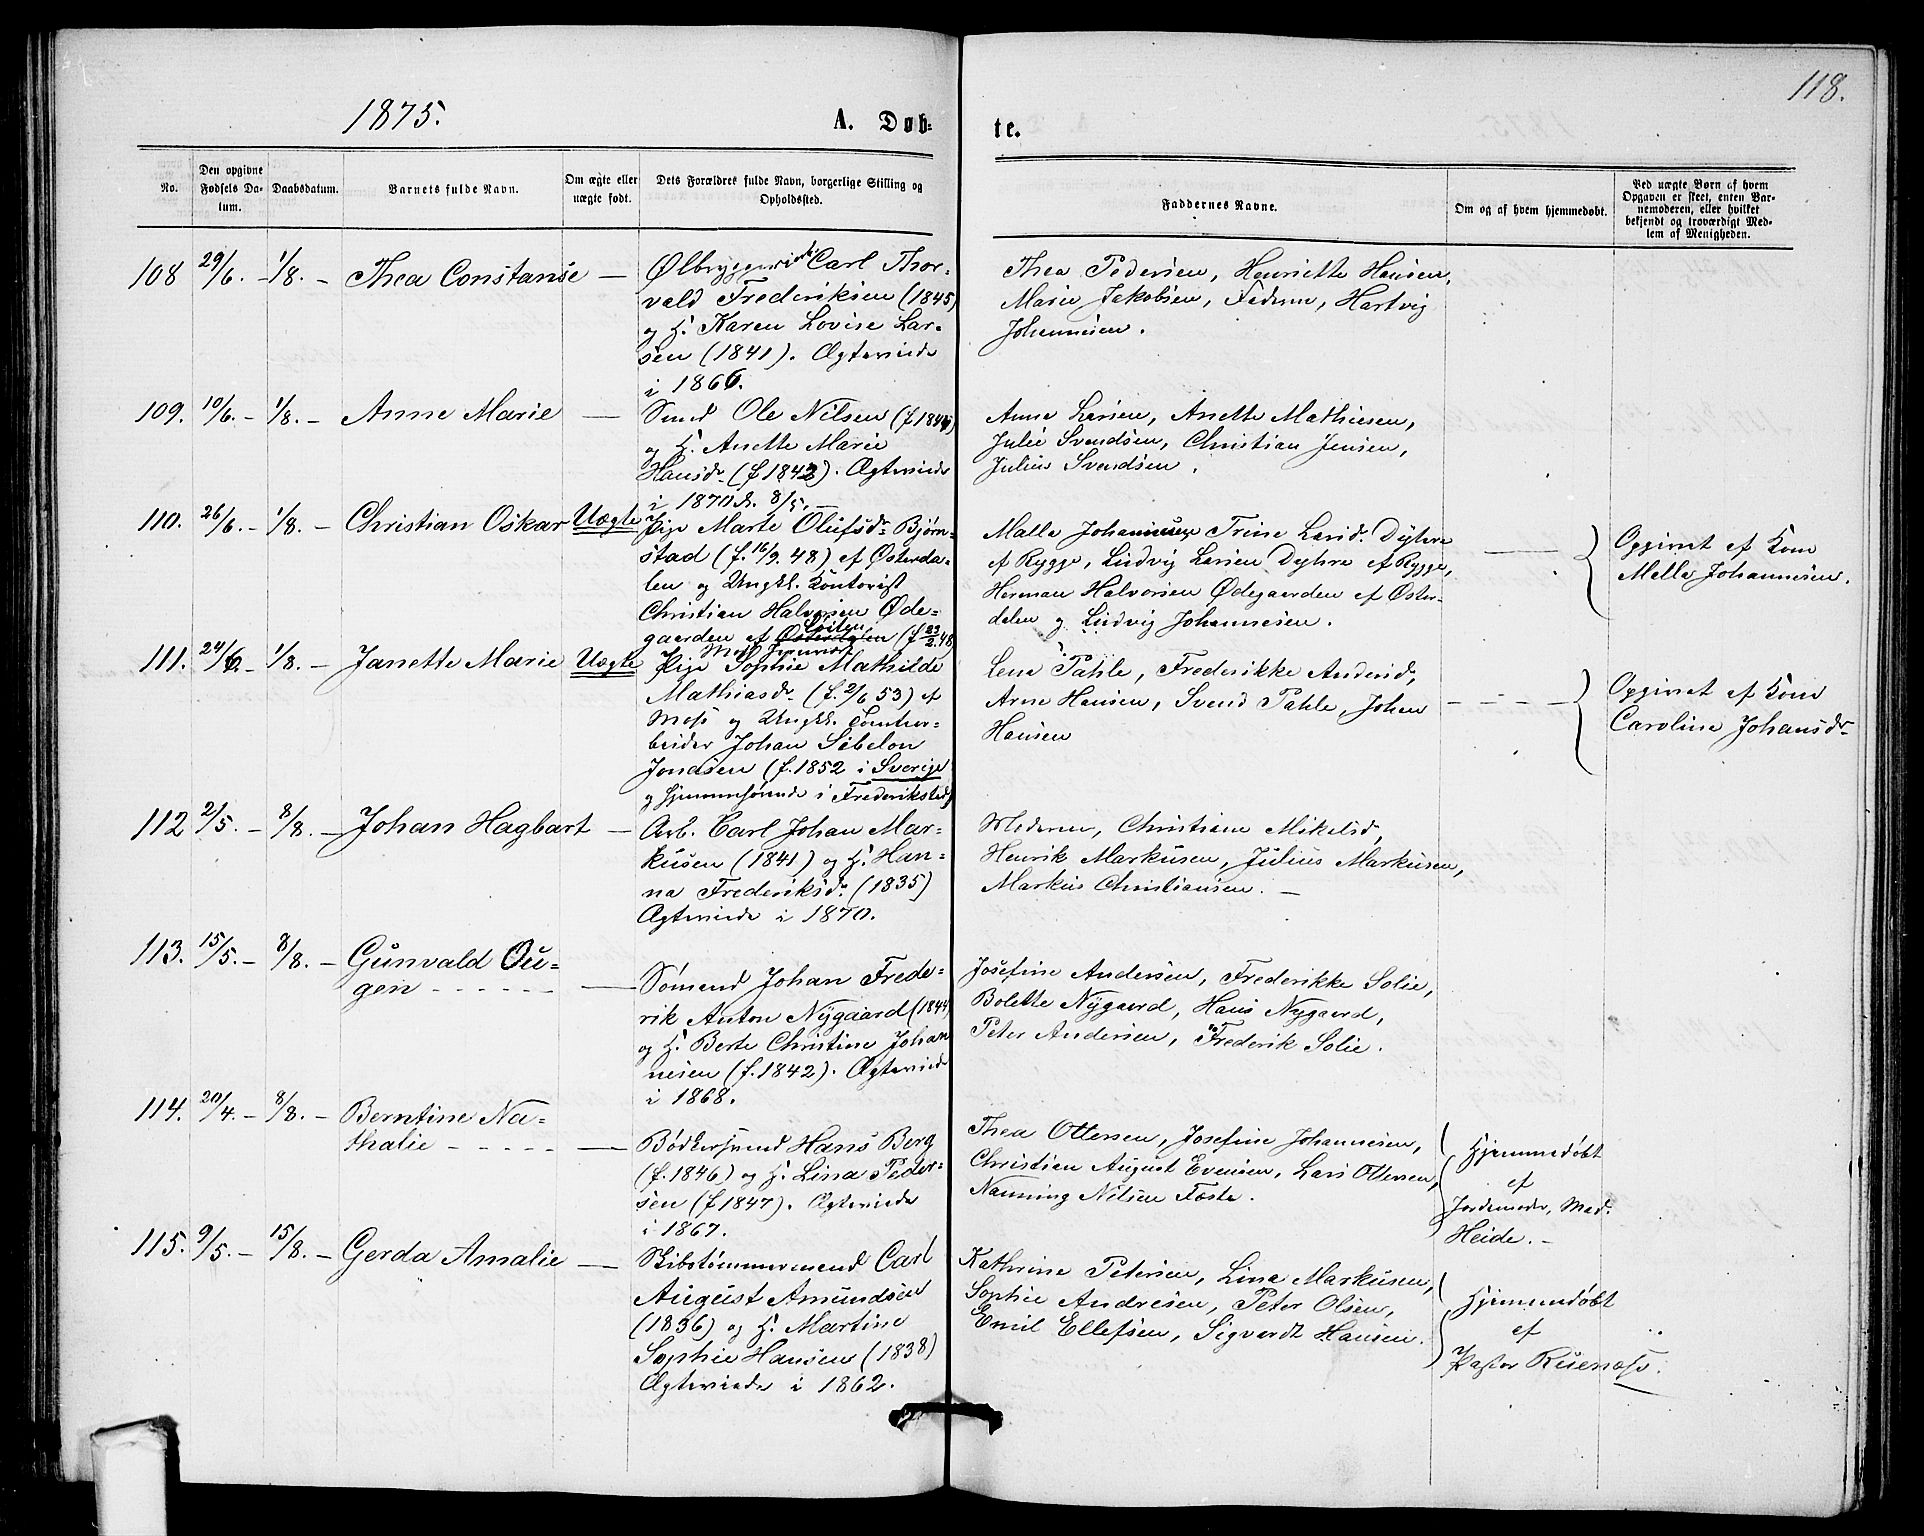 118.
1875.
A. Døb-
te.
No.
Den opgivne
Fødsels Da-
tum.
Daabsdatum.
Barnets fulde Navn.
Om ægte eller
uægte født.
Dets Forældres fulde Navn, borgerlige Stilling og
Opholdssted.
Faddernes Navne.
Om og af hvem hjemmedøbt.
Ved uægte Børn af hvem
Opgaven er skeet, enten Bar-
nemoderen, eller hvilket
bekjendt og troværdigt Med-
lem af Menigheden.
108 29/6. – 1/8. – Thea Constanse —
Carl Thor-
vald Frederiksen (1845)
og H. Karen Lovise Lar-
sen (1841). Ægteviede
i 1866.
Thea Pedersen, Henriette Hansen,
Marie Jakobsen, Faderen, Hartvig
Johannesen.
109. 10/6. – 1/8. – Anne Marie —
Smed Ole Nilsen (f 1844)
og H. Anette Marie
Hansd. (f 1842). Ægteviede
i 1870 d. 8/5. —
Anne Larsen, Anette Mathiesen,
Julie Svendsen, Christian Jensen,
Julius Svendsen.
110. 26/6. – 1/8. – Christian Oskar Uægte
Pige Marte Olufsdr. Bjørn-
stad (f. 16/9. 48) af Østerda-
len og Ungkl. Kontorist
Christian Halvorsen Øde-
gaarden af Østerdalen Løiten (f 23/2 48)
Malla Johannesen Trine Larsd. Dyhre
af Rygge, Ludvig Larsen Dyhre af Rygge,
Herman Halvorsen Ødegaarden af Øster-
dalen og Ludvig Johannesen.
Opgivet af Kone
Malla Johannesen.
111. 24/6. – 1/8. – Janette Marie Uægte
Pige Sophie Mathilde
Mathiasdr. (f. 2/6 53) af
Moss og Ungkl. Tomtear-
beider Johan Sibelon
Jondsen (f. 1852 i Sverige
og hjemmehørende i Frederikstad)
Lena Pahle, Frederikke Andersd,
Arne Hansen, Svend Pahle, Johan
Hansen
Opgivet af Kone
Caroline Johansdr
112 2/5. – 8/8. – Johan Hagbart —
Arb. Carl Johan Mar-
kusen (1841) og H. Han-
na Frederiksd. (1835)
Ægteviede i 1870.
Moderen, Christiane Mikelsd,
Henrik Markusen, Julius Markusen,
Markus Christiansen. —
113. 15/5. – 8/8. – Gunvald Ou-
gen - - - - - - —
Sømand Johan Frede-
rik Anton Nygaard (1844)
og H. Berte Christine Johan
nesen (f. 1842). Ægteviede
i 1868.
Josefine Andersen, Frederikke Solie,
Bolette Nygaard, Hans Nygaard,
Peter Andersen, Frederik Solie.
114. 20/4. – 8/8. – Berntine Na-
thalie - - - - - —
Bødkersvend Hans Berg
(f. 1846) og H. Lina Peder-
sen (f 1847). Ægteviede
i 1867.
Thea Ottersen, Josefine Johannesen,
Christian August Evensen, Lars Ottersen,
Nanning Nilsen Foste.
Hjemmedøbt
af
Jordemoder, Mad.
Heide. –
115. 9/5. – 15/8. – Gerda Amalie —
Skibstømmermand Carl
August Amundsen
(1836) og H. Martine
Sophie Hansen (1838)
Ægteviede i 1862.
Kathrine Petersen, Lina Markusen,
Sophie Andresen, Peter Olsen,
Emil Ellefsen, Sigvardt Hansen.
Hjemmedøbt
af
Pastor Ruenæss.